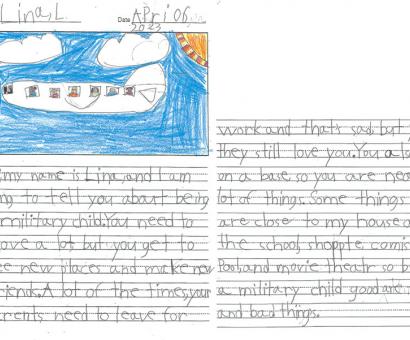 Lina, L.
Date April 06,
2023
my name is Lina, and I am
ng to tell you about being
military child. You need to
ove a lot but you get to
ee new places and make new
riends. A lot of the times, your
rents need to leave for
work and that's sad, but
they still love you. You als
on a base, so you are nea
lot of things. Some things
are close to my house a
the school, shoppte, comis
Pool, and movie theatr so b
a military child good are
and bad things.